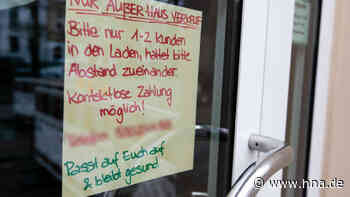 NUR AUßER-HAUS VERKAUF
Bitte nur 1-2 Kunden
in den Laden, haltet bitte
Abstand zueinander.
Kontaktlose Zahlung
möglich!
Passt auf Euch auf
& bleibt gesund
www.hna.de